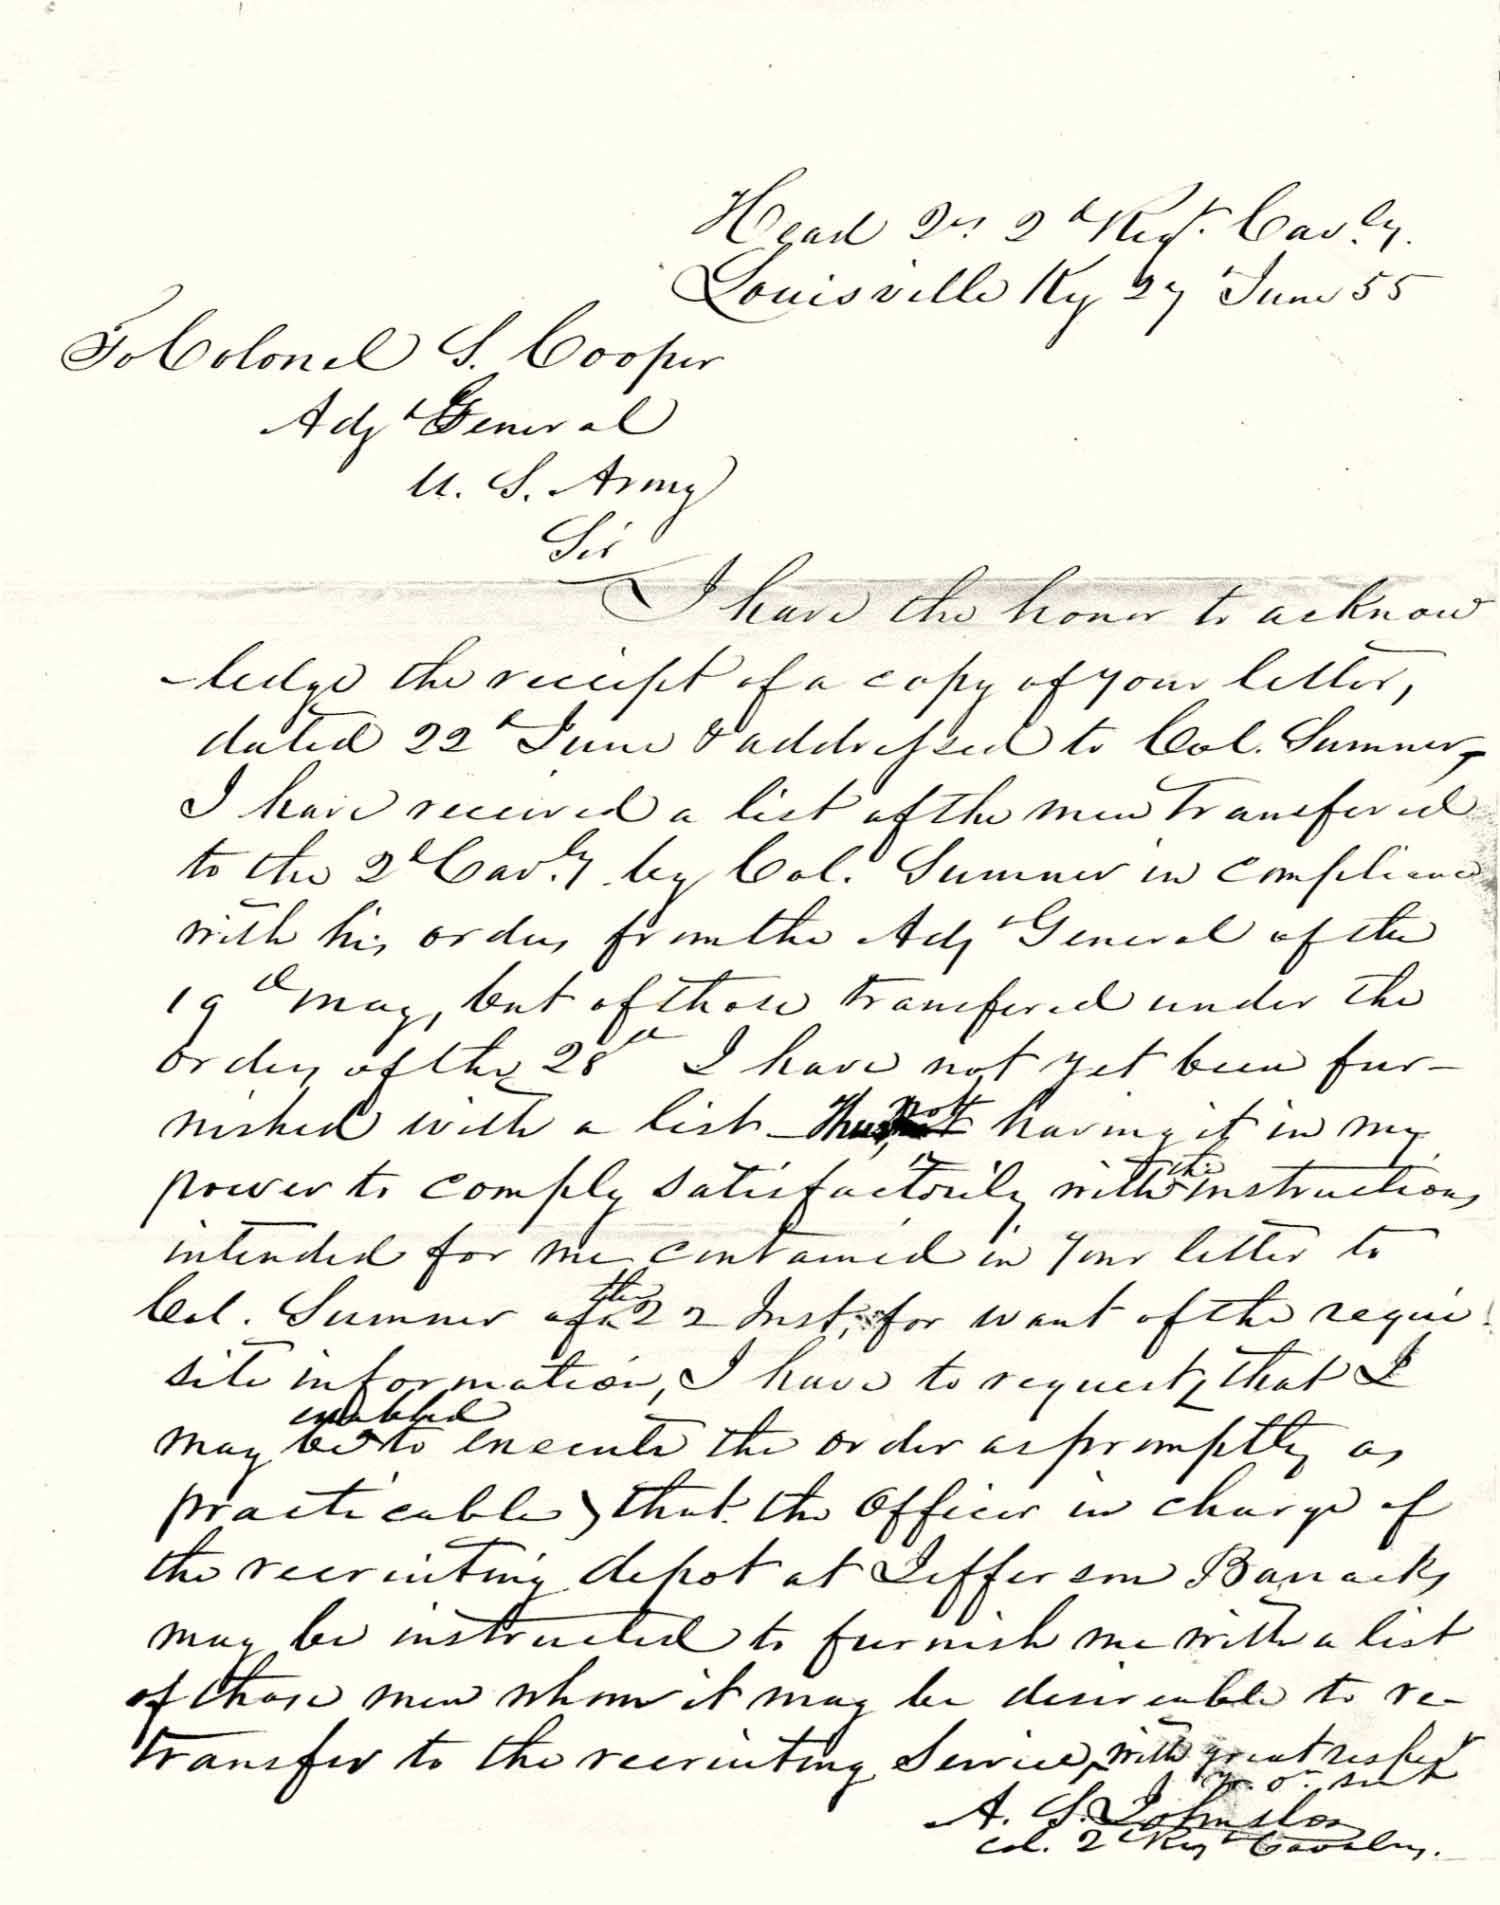 Head Qrs 2d Regt. Cavly.
Louisville Ky 27 June 55
To Colonel S. Cooper
Adjt General
U. S. Army
Sir
I have the honor to acknow
-ledge the receipt of a copy of your letter,
dated 22d June & addressed to Col. Sumner,
I have received a list of the men transfered
to the 2d Cavly. by Col. Sumner in compliance
with his orders from the Adjt General of the
19th May, but of those transfered under the
orders of the 28th I have not yet been fur-
nished with a list - not having it in my
power to comply satisfactorily with the instructions
intended for me contained in your letter to
Col. Sumner of the 22 Inst, for want of the requi-
site information, I have to request, that I
may be enabled to execute the order as promptly as
practicable, that the Officer in charge of
the recruiting depot at Jefferson Barracks
may be instructed to furnish me with a list
of those men whom it may be desireable to re-
transfer to the recruiting Service, with great respect
yr. ob. sevt
A. S. Johnston
Col. 2d Regt Cavalry.